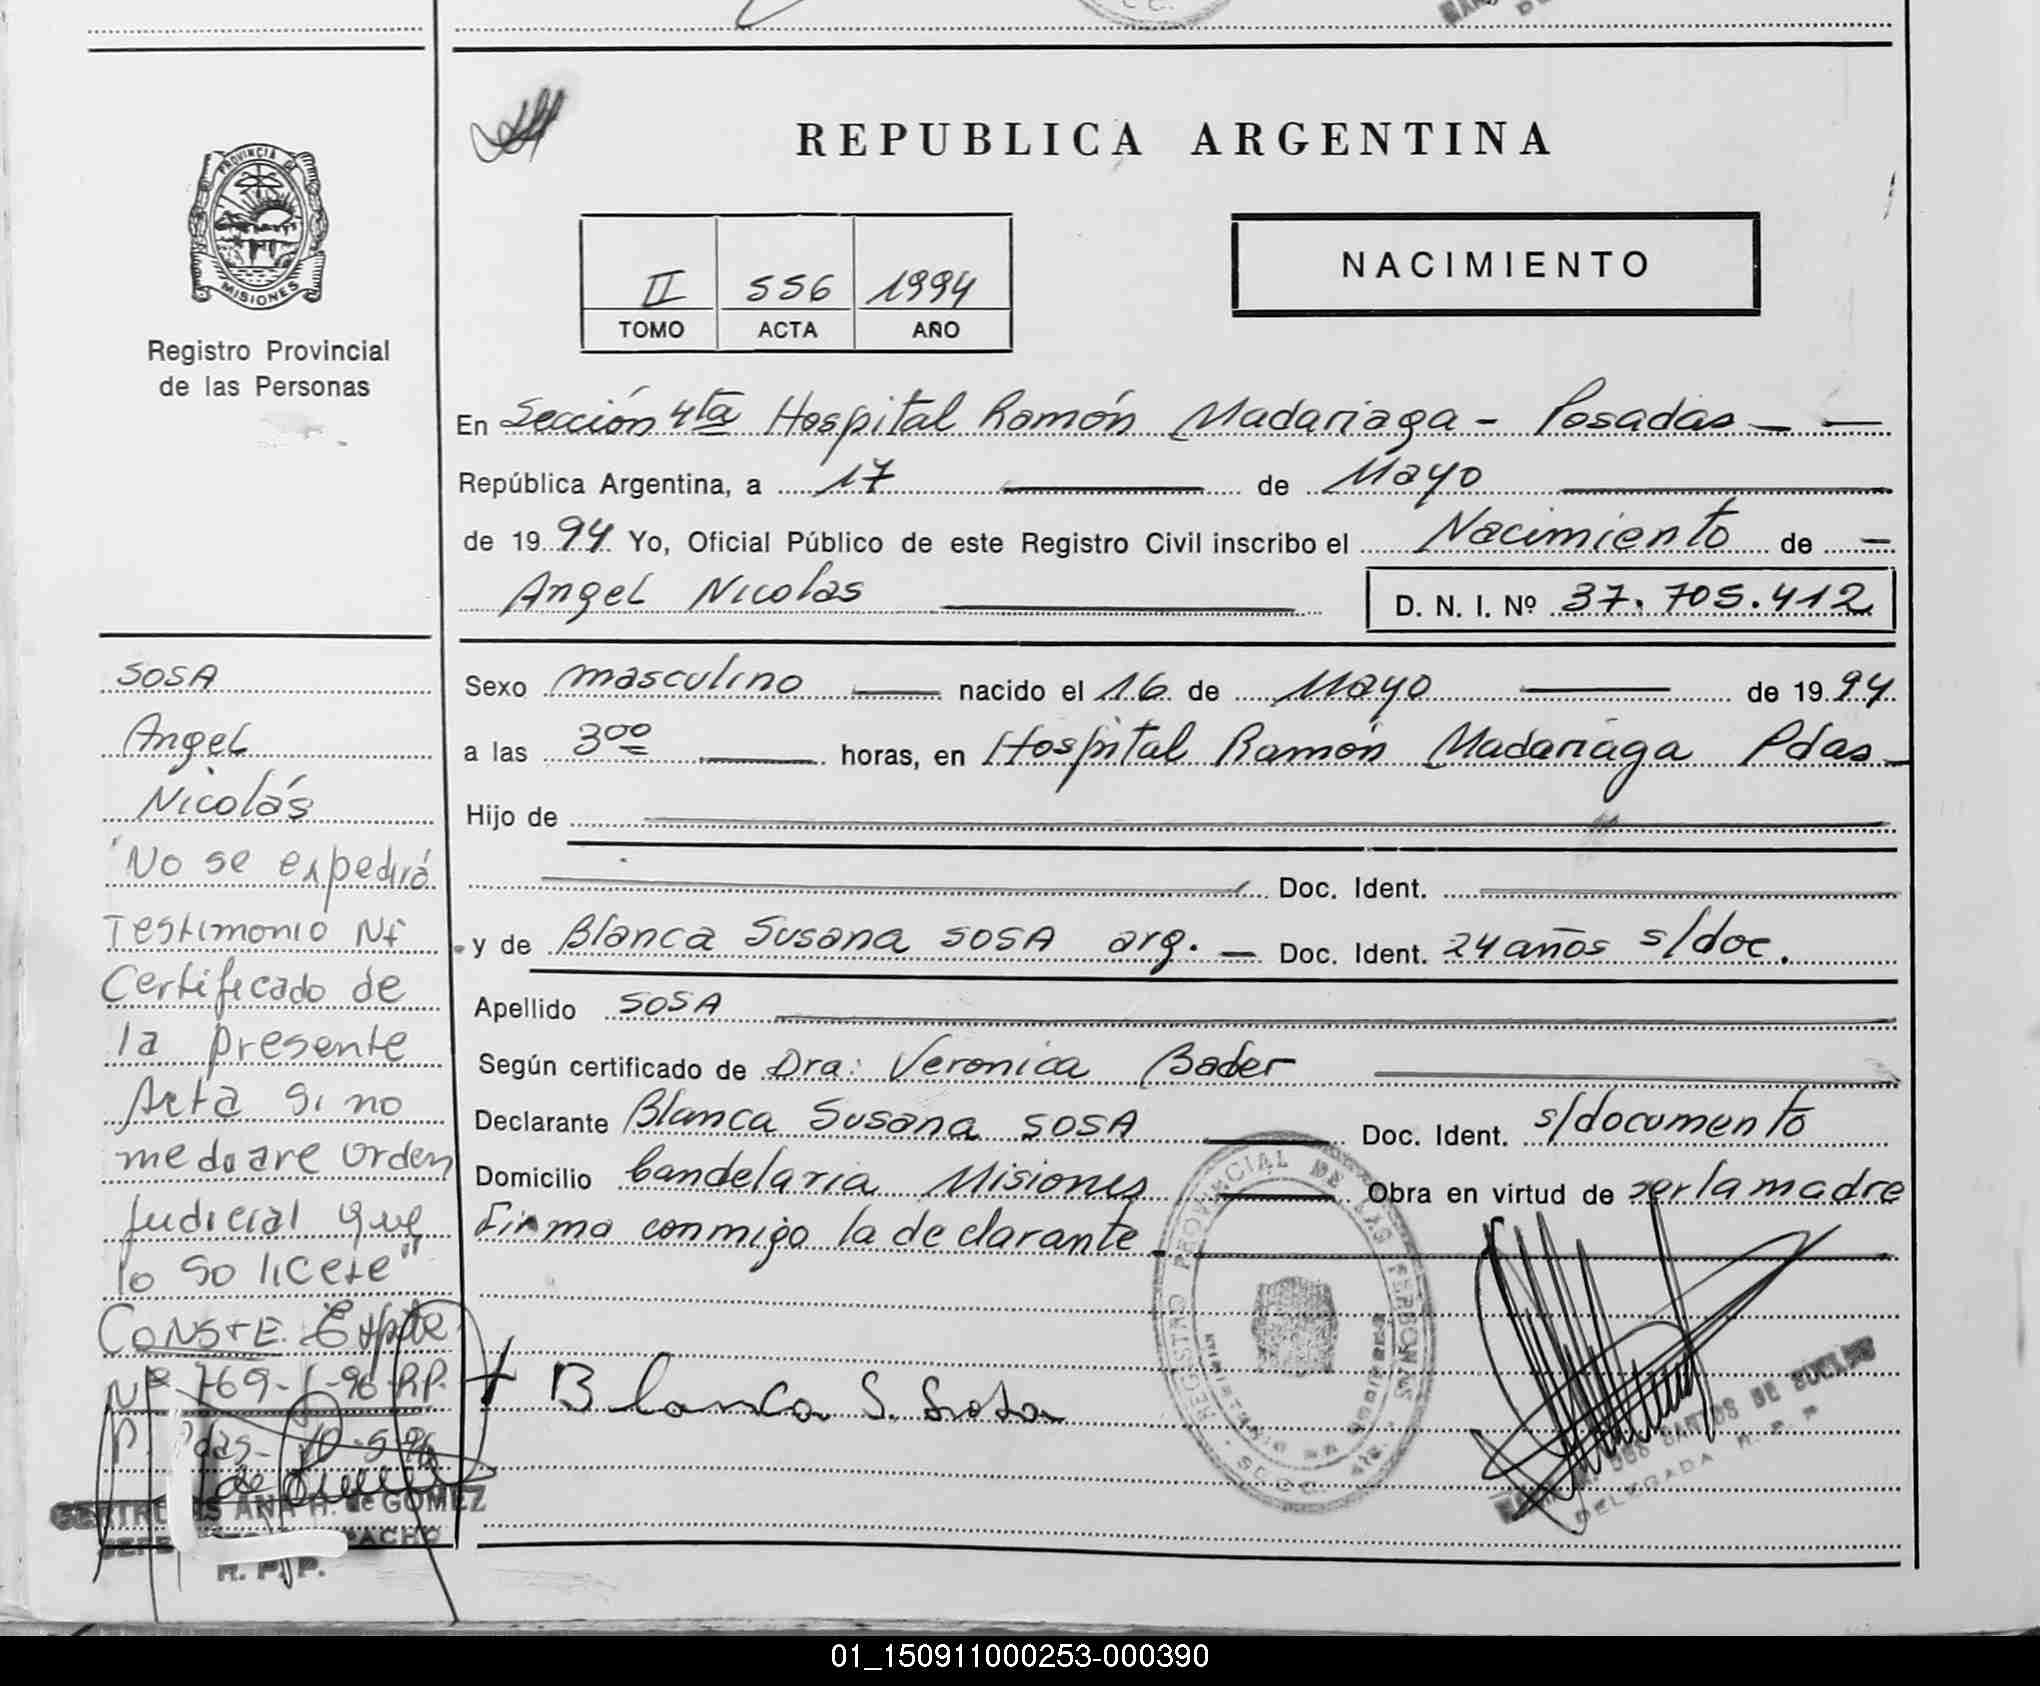 REPUBLICA ARGENTINA
PROVINCIA DE
MISIONES
Registro Provincial
de las Personas
II 556 1994
TOMO ACTA AÑO
NACIMIENTO
En Sección 4ta Hospital Ramón Madariaga - Posadas -
República Argentina, a 17 de Mayo
de 1994 Yo, Oficial Público de este Registro Civil inscribo el Nacimiento de
Angel Nicolas D. N. I. Nº 37.705.412
Sexo masculino nacido el 16 de Mayo de 1994
a las 3oo horas, en Hospital Ramón Madariaga Pdas
Hijo de
Doc. Ident.
y de Blanca Susana SOSA arg. - Doc. Ident. 24 años s/doc.
Apellido SOSA
Según certificado de Dra: Veronica Bader
Declarante Blanca Susana SOSA Doc. Ident. s/documento
Domicilio Candelaria Misiones Obra en virtud de ser la madre
Firma conmigo la declarante
Blanca S. Sosa
REGISTRO PROVINCIAL DE LAS PERSONAS
DOS SANTOS DE
DELEGADA R. P. P.
SOSA
Angel
Nicolás
"No se expedirá
Testimonio Ni
Certificado de
la presente
Acta si no
mediare orden
Judicial que
lo solicete"
CONSTE. Expte
Nº 769- -96 R.P.P.
Pdas-
ANA H. de GOMEZ
R. P. P.
01_150911000253-000390